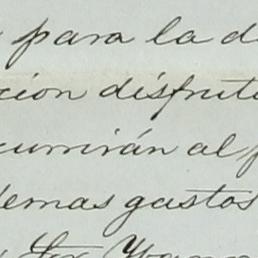 para la d
cion disfrut
currirán al
demas gastos